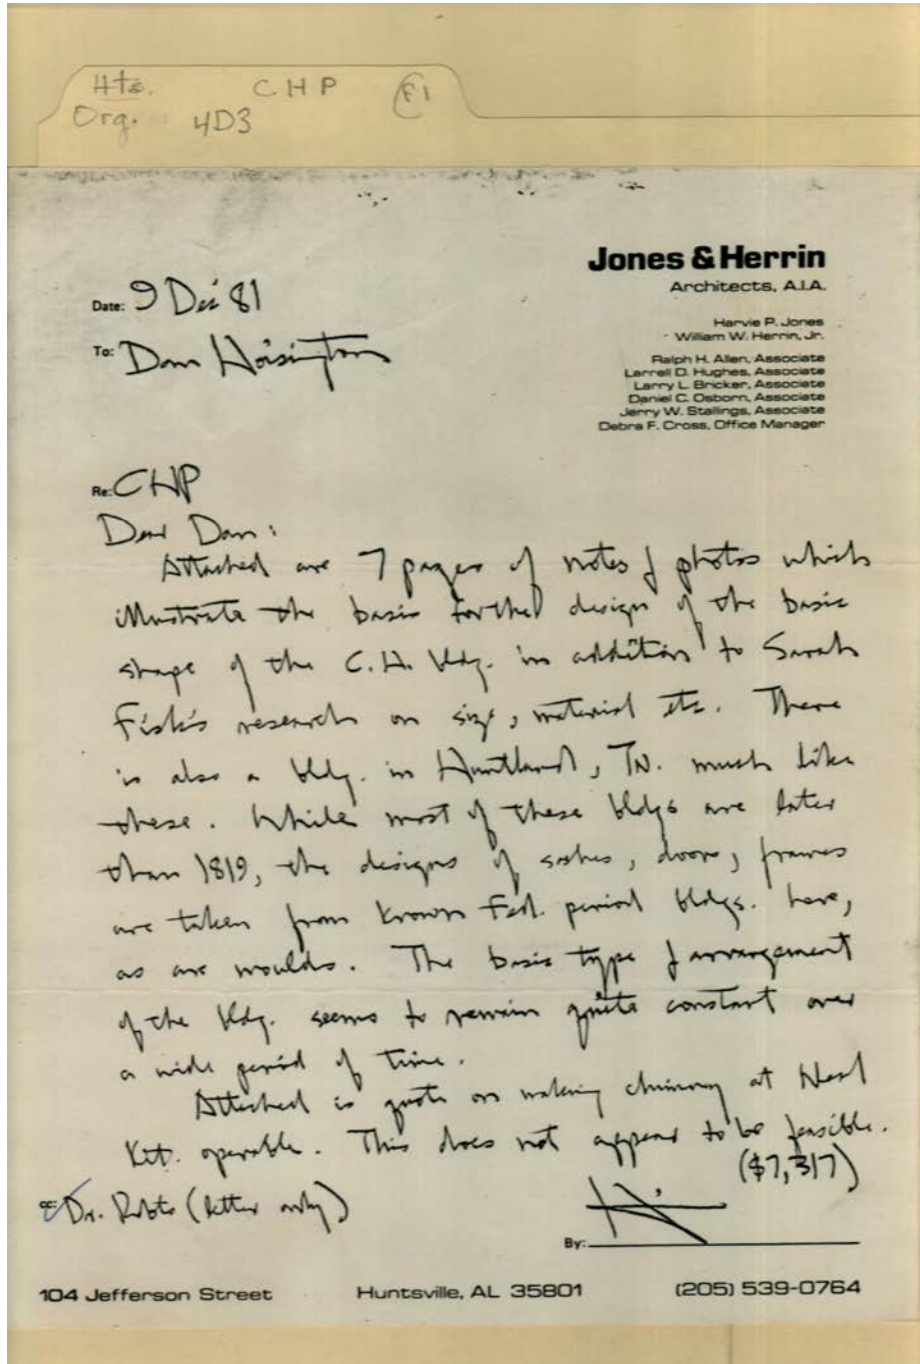 Hts. CHP F1
Org. 4D3
Jones & Herrin
Architects, A.I.A.
Harvie P. Jones
William W. Herrin, Jr.
Ralph H. Allen, Associate
Larrell D. Hughes, Associate
Larry L. Bricker, Associate
Daniel C. Osborn, Associate
Jerry W. Stallings, Associate
Debra F. Cross, Office Manager
Date: 9 Dec 81
To: Dan Hoisington
Re: CHP
Dear Dan:
Attached are 7 pages of notes & photos which
illustrate the basis for the design of the basic
shape of the C.H. bldg. in addition to Sarah
Fisk's research on size, material etc. There
is also a bldg. in Huntland, TN. much like
these. While most of these bldgs are later
than 1819, the designs of sashes, doors, frames
are taken from known Fed. period bldgs. here,
as are moulds. The basic type & arrangement
of the bldg. seems to remain quite constant over
a wide period of time.
Attached is quote on making chimney at Neal
Kit. operable. This does not appear to be feasible.
($7,317)
cc: Dr. Robts (letter only)
By:
104 Jefferson Street Huntsville, AL 35801 (205) 539-0764